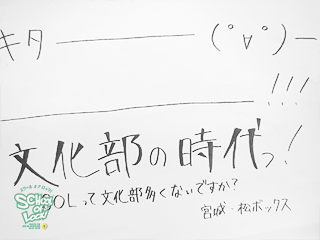 キタ ―――― (ﾟ∀ﾟ) ―
――――――― !!!
文化部の時代っ!
SOLって文化部多くないですか?
宮城・松ボックス
スクール オブ ロック!
SCHOOL OF LOCK!